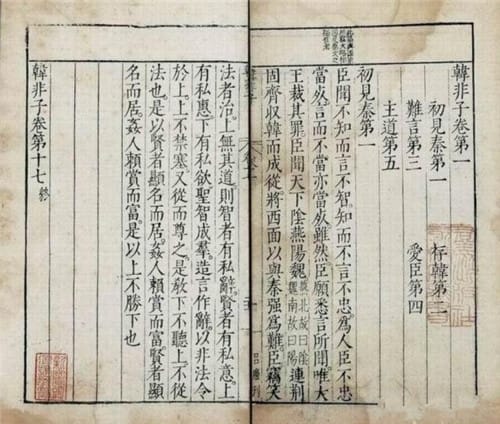 韓非子卷第一
初見秦第一 存韓第二
難言第三 愛臣第四
主道第五
初見秦第一
臣聞不知而言不智知而不言不忠爲人臣不忠
當死言而不當亦當死雖然臣願悉言所聞唯大
王裁其罪臣聞天下陰燕陽魏燕北故曰陰魏南故曰陽連荆
固齊收韓而成從將西面以與秦强爲難臣竊笑
法者治上無其道則智者有私辭賢者有私意上
有私惠下有私欲聖智成羣造言作辭以非法令
於上上不禁塞又從而尊之是教下不聽上不從
法也是以賢者顯名而居姦人賴賞而富賢者顯
名而居姦人賴賞而富是以上不勝下也
韓非子卷第十七 終